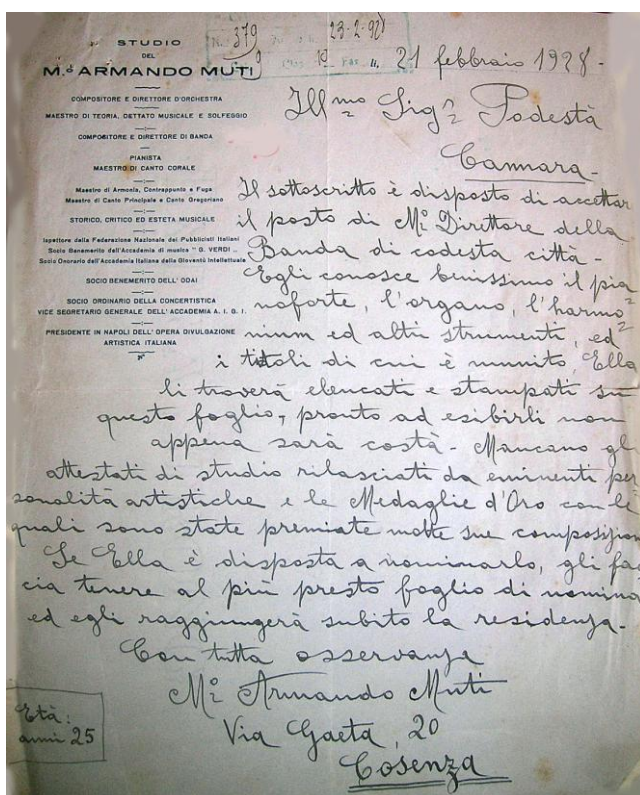 STUDIO
DEL
M.º ARMANDO MUTI
COMPOSITORE E DIRETTORE D'ORCHESTRA
MAESTRO DI TEORIA, DETTATO MUSICALE E SOLFEGGIO
COMPOSITORE E DIRETTORE DI BANDA
PIANISTA
MAESTRO DI CANTO CORALE
Maestro di Armonia, Contrappunto e Fuga
Maestro di Canto Principale e Canto Gregoriano
STORICO, CRITICO ED ESTETA MUSICALE
Ispettore della Federazione Nazionale dei Pubblicisti Italiani
Socio Benemerito dell'Accademia di musica " G. VERDI "
Socio Onorario dell'Accademia Italiana della Gioventù Intellettuale
SOCIO BENEMERITO DELL' ODAI
SOCIO ORDINARIO DELLA CONCERTISTICA
VICE SEGRETARIO GENERALE DELL' ACCADEMIA A. I. G. I.
PRESIDENTE IN NAPOLI DELL' OPERA DIVULGAZIONE
ARTISTICA ITALIANA
N. 379 23-2-928
9 10 Fasc.
21 febbraio 1928-
Ill.mo Sig.r Podestà
Cannara-
Il sottoscritto è disposto di accettar
il posto di M.º Direttore della
Banda di codesta città-
Egli conosce benissimo il pia
noforte, l'organo, l'harmo
nium ed altri strumenti, ed
i titoli di cui è munito, Ella
li troverà elencati e stampati su
questo foglio, pronto ad esibirli non
appena sarà costà- Mancano gli
attestati di studio rilasciati da eminenti per
sonalità artistiche e le Medaglie d'Oro con le
quali sono state premiate molte sue composizion
Se Ella è disposta a nominarlo, gli fac
cia tenere al più presto foglio di nomina
ed egli raggiungerà subito la residenza-
Con tutta osservanza
M.º Armando Muti
Via Gaeta, 20
Cosenza
Età:
anni 25